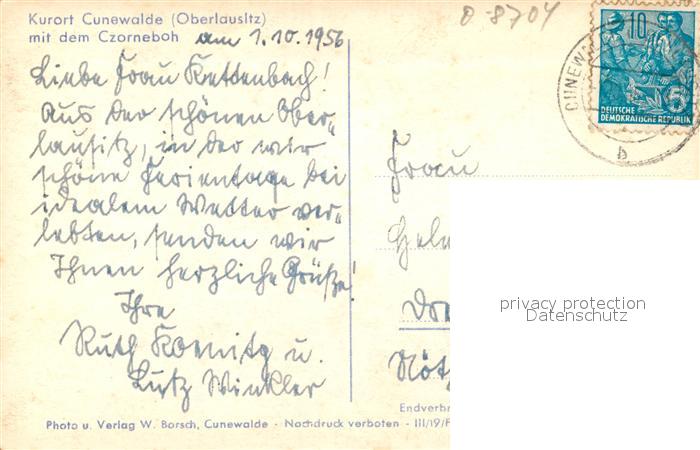 Kurort Cunewalde (Oberlausitz)
mit dem Czorneboh
am 1.10.1956
O-8704
Liebe Frau Kettenbach!
Aus der schönen Ober-
lausitz, in der wir
schöne Ferientage bei
idealem Wetter ver-
lebten, senden wir
Ihnen herzliche Grüße!
Ihre
Ruth Koenitz u.
Lutz Winkler
10
5
DEUTSCHE
DEMOKRATISCHE REPUBLIK
CUNEW
b
Frau
Hele
Dre
Nöt
privacy protection
Datenschutz
Endverbr
Photo u. Verlag W. Borsch, Cunewalde - Nachdruck verboten - III/19/F